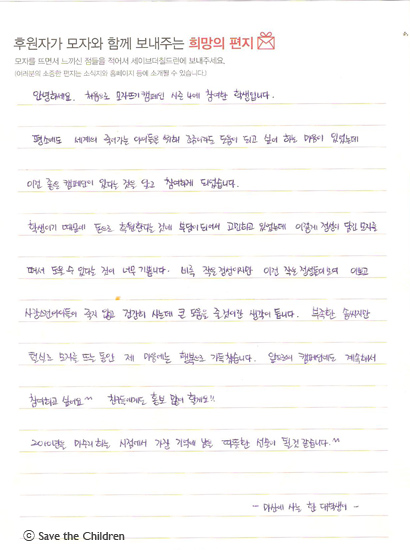 후원자가 모자와 함께 보내주는 희망의 편지
모자를 뜨면서 느끼신 점들을 적어서 세이브더칠드런에 보내주세요.
(여러분의 소중한 편지는 소식지와 홈페이지 등에 소개될 수 있습니다.)
안녕하세요. 처음으로 모자뜨기 캠페인 시즌 4에 참여한 학생입니다.
평소에도 세계의 죽어가는 아이들을 위해 조금이라도 도움이 되고 싶어 하는 마음이 있었는데
이런 좋은 캠페인이 있다는 것을 알고 참여하게 되었습니다.
학생이기 때문에 돈으로 후원한다는 것에 부담이 되어서 고민하고 있었는데 이렇게 정성이 담긴 모자를
떠서 도울 수 있다는 것이 너무 기쁩니다. 비록 작은 정성이지만 이런 작은 정성들이 모여
사랑스런 아이들이 죽지 않고 건강히 사는데 큰 도움을 줄것이란 생각이 듭니다. 부족한 솜씨지만
털실로 모자를 뜨는 동안 제 마음에는 행복으로 가득찼습니다. 앞으로의 캠페인에도 계속해서
참여하고 싶어요^^ 친구들에게도 홍보 많이 할게요!!
2010년을 마무리하는 시점에서 가장 기억에 남는 따뜻한 선물이 될것 같습니다.^^
- 마산에 사는 한 대학생이 -
ⓒ Save the Children